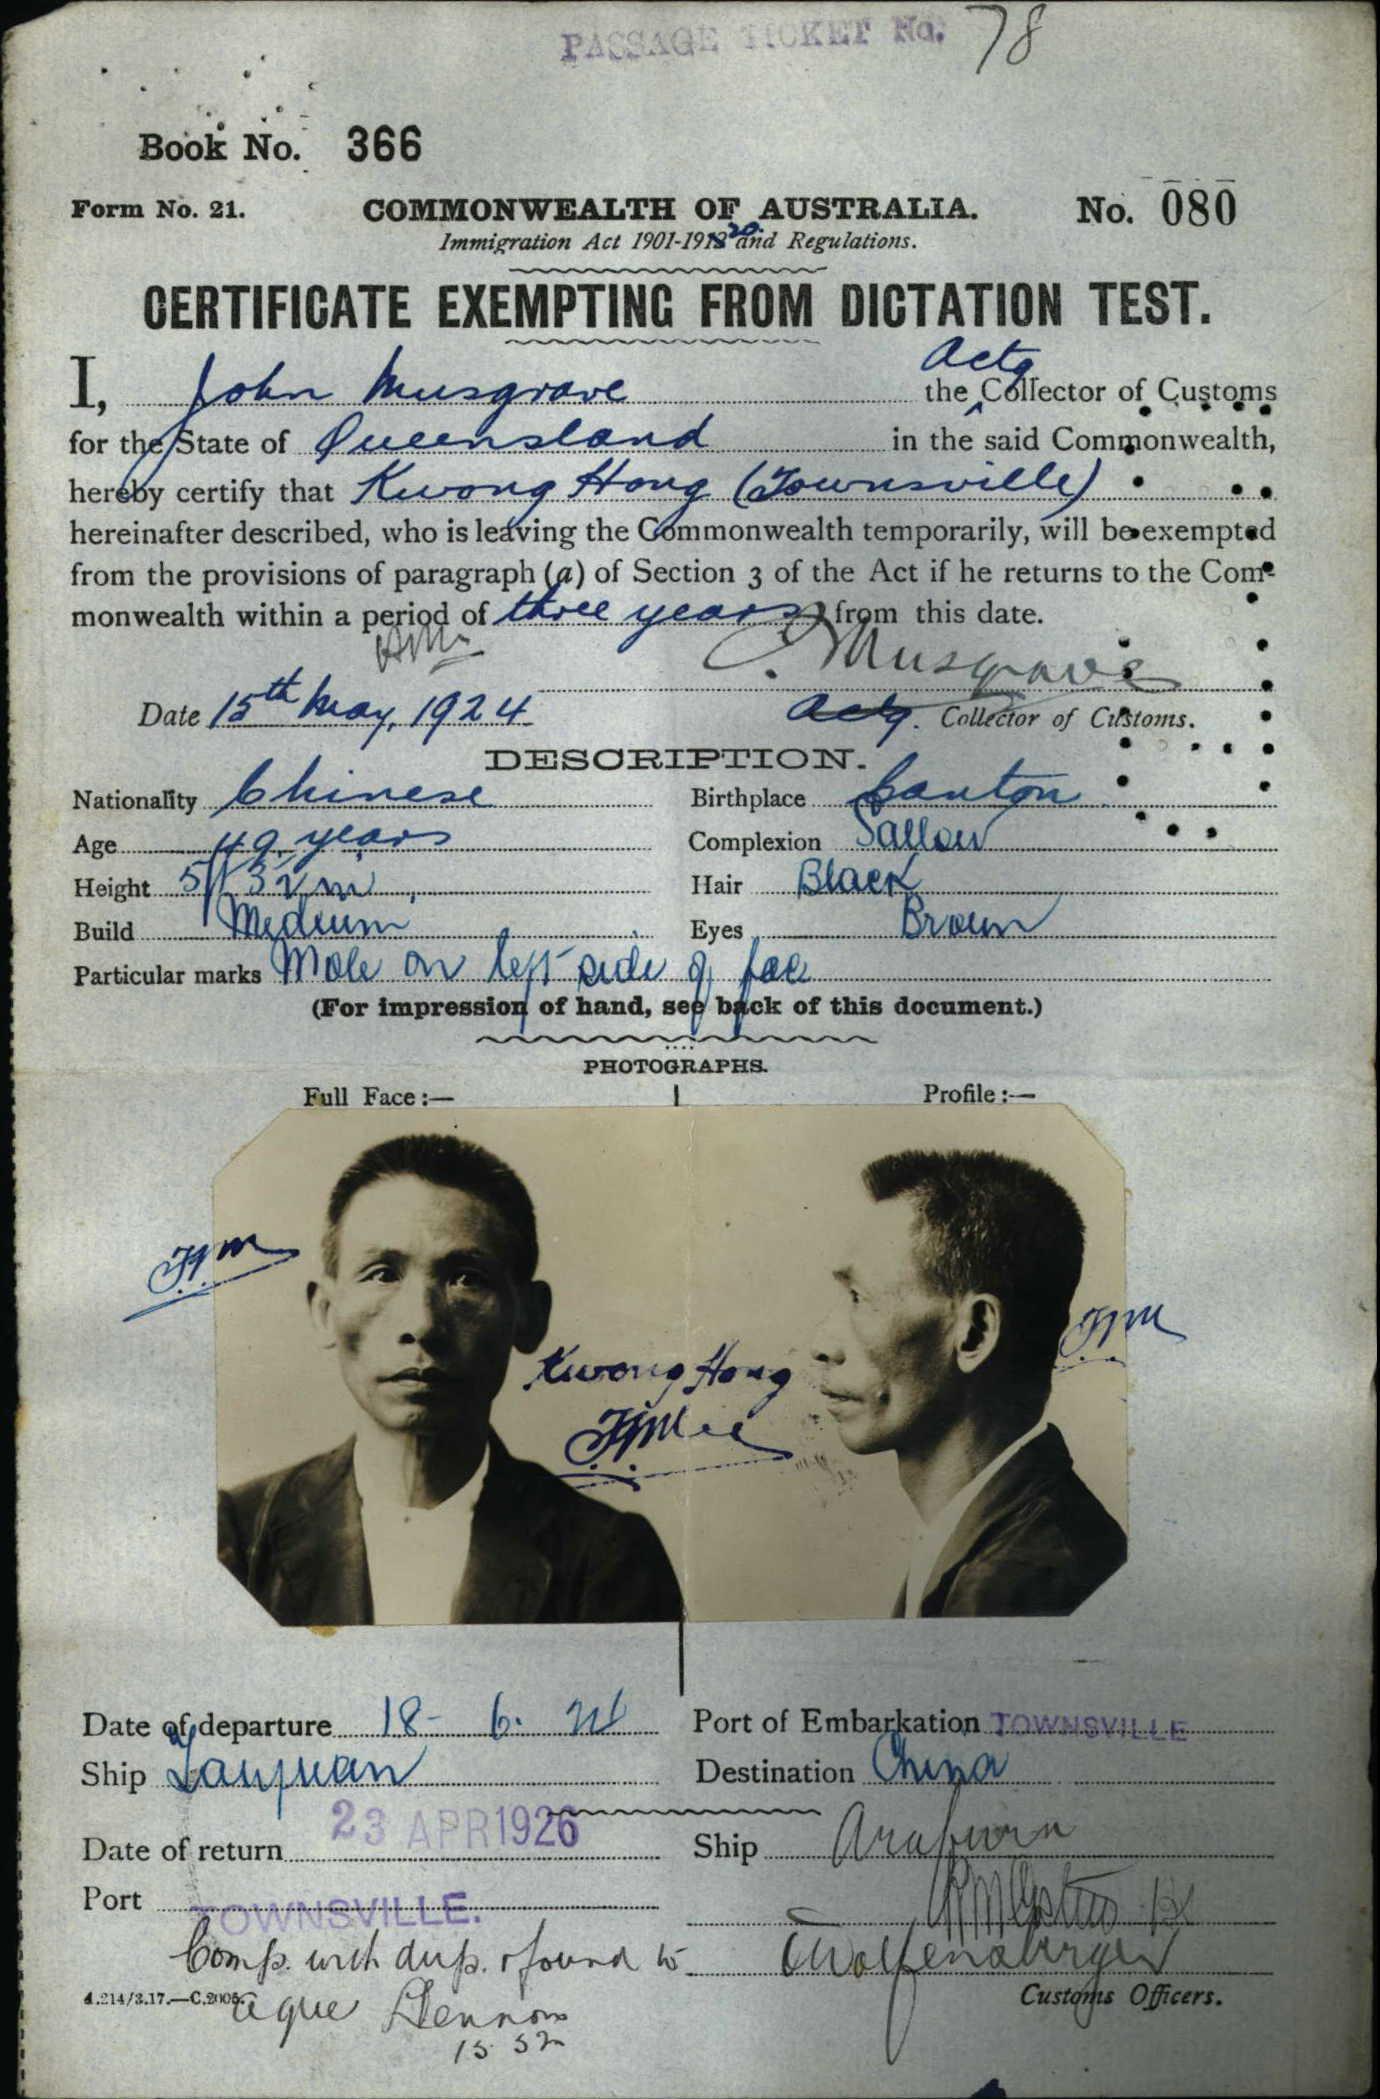 PASSAGE TICKET No. 78
Book No. 366
Form No. 21. COMMONWEALTH OF AUSTRALIA. No. 080
Immigration Act 1901-1912 20 and Regulations.
CERTIFICATE EXEMPTING FROM DICTATION TEST.
Actg
I, John Musgrave the Collector of Customs
for the State of Queensland in the said Commonwealth,
hereby certify that Kwong Hong (Townsville)
hereinafter described, who is leaving the Commonwealth temporarily, will be exempted
from the provisions of paragraph (a) of Section 3 of the Act if he returns to the Com-
monwealth within a period of three years from this date.
J. Musgrave
Date 15th May, 1924 Actg. Collector of Customs.
DESCRIPTION.
Nationality Chinese Birthplace Canton
Age 49 years Complexion Sallow
Height 5ft 3½ in Hair Black
Build Medium Eyes Brown
Particular marks Mole on left side of face
(For impression of hand, see back of this document.)
PHOTOGRAPHS.
Full Face:— Profile:—
Kwong Hong
Date of departure 18- 6. 24 Port of Embarkation TOWNSVILLE
Ship Taiyuan Destination China
Date of return 23 APR 1926 Ship Arafura
Port TOWNSVILLE.
Comp. with dup. & found to
agree
Customs Officers.
A.214/3.17.—C.2005.